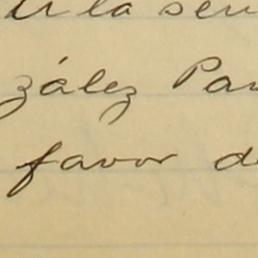 la sen
zález Par
favor de